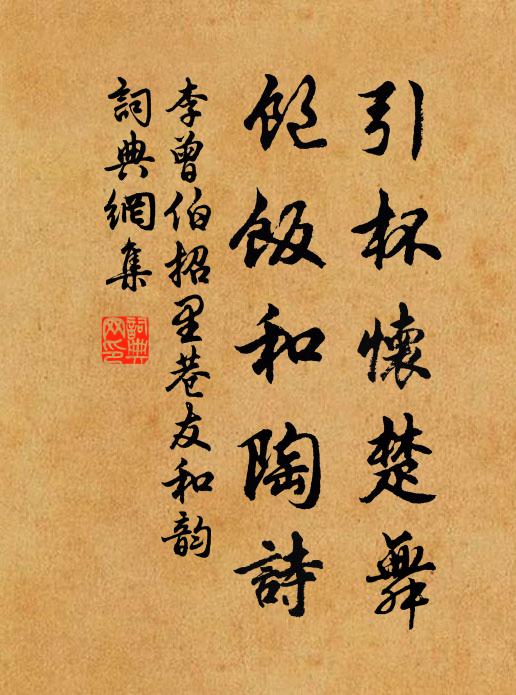 引杯懷楚舞
飽飯和陶詩
李曾伯招里巷友和韵
詞典網集
詞典網印